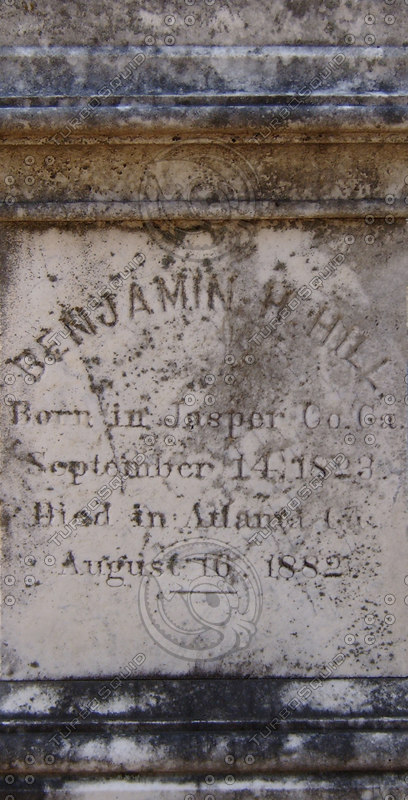 BENJAMIN H. HILL
Born in Jasper Co. Ga.
September 14, 1823
Died in Atlanta Ga.
August 16, 1882